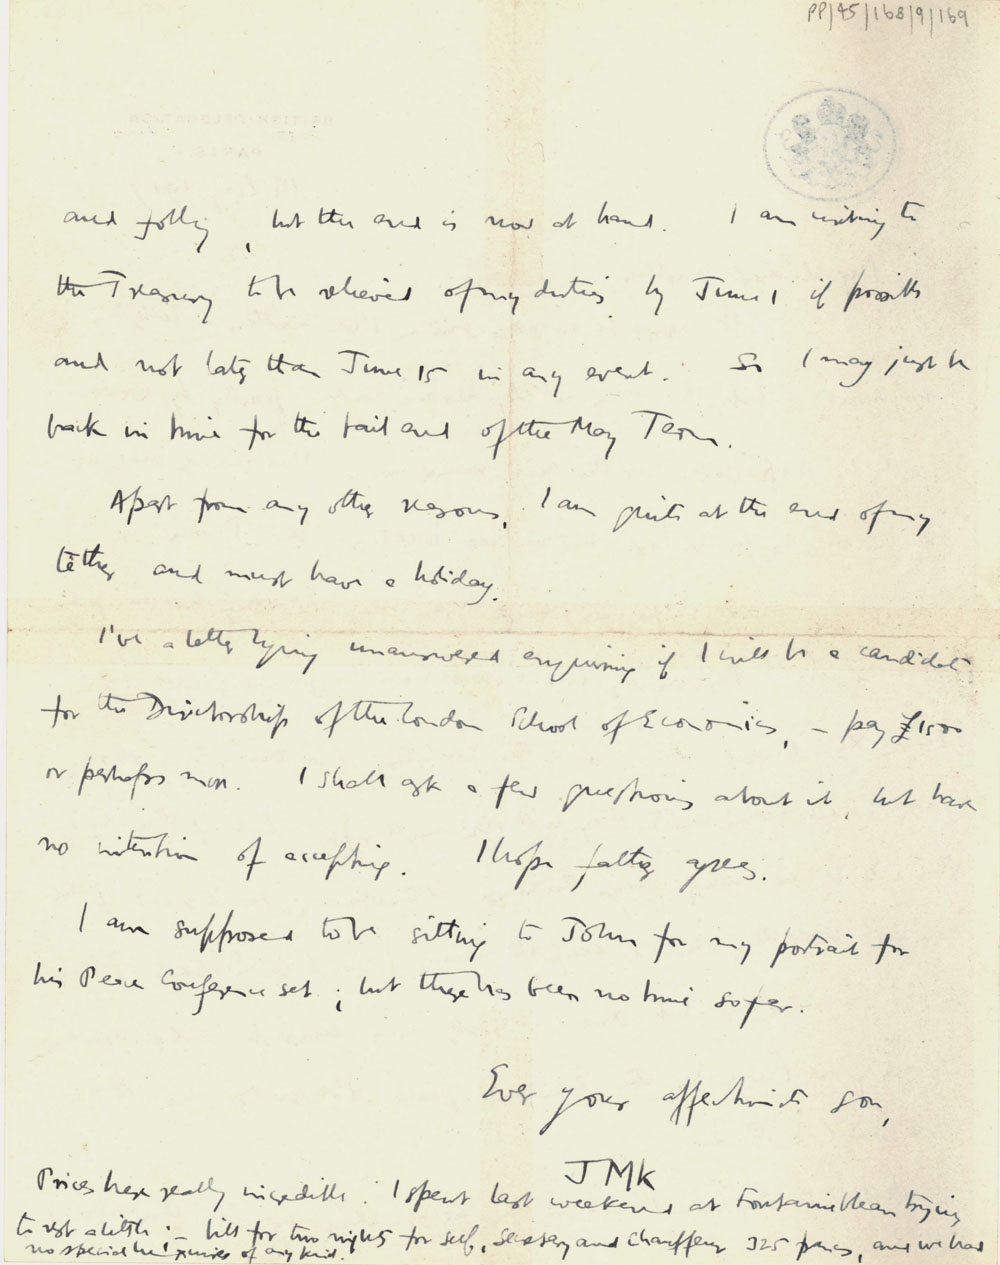 PP/45/168/9/169
and folly, but the end is now at hand. I am writing to
the Treasury to be relieved of my duties by June 1 if possible
and not later than June 15 in any event. So I may just be
back in time for the tail end of the May Term.
Apart from any other reasons, I am quite at the end of my
tether and must have a holiday.
I've a letter lying unanswered enquiring if I will be a candidate
for the Directorship of the London School of Economics, – pay £1500
or perhaps more. I shall ask a few questions about it, but have
no intention of accepting. I hope father agrees.
I am supposed to be sitting to John for my portrait for
his Peace Conference set; but there has been no time so far.
Ever your affectionate son,
JMK
Prices here really incredible. I spent last weekend at Fontainebleau trying
to rest a little; – bill for two nights for self, secretary and chauffeur 325 francs, and we had
no special luxuries of any kind.